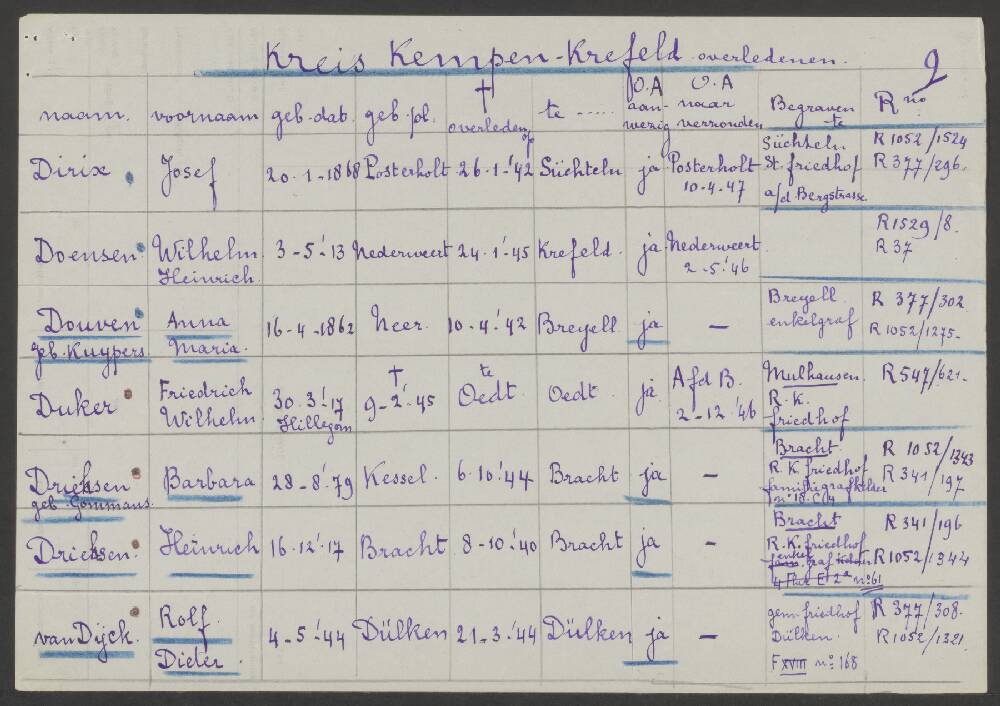 Kreis Kempen-Krefeld overledenen. 9
naam. voornaam geb.dat. geb.pl. † overleden op te ..... O.A aan-wezig O.A naar verzonden Begraven te R no
Dirix Josef 20-1-1868 Posterholt 26-1-'42 Süchteln ja Posterholt 10-4-47 Süchteln St. friedhof a/d Bergstrasse R 1052/1524 R 377/296.
Doensen Wilhelm Heinrich. 3-5-'13 Nederweert 24-1-'45 Krefeld. ja Nederweert 2-5-'46 R 1529/8. R 37
Douven geb. Kuypers Anna Maria. 16-4-1862 Neer. 10-4-'42 Breyell ja — Breyell enkelgraf R 377/302 R 1052/1275-
Duker Friedrich Wilhelm. 30-3-'17 Hillegom † 9-2-'45 te Oedt Oedt. ja. Afd B. 2-12-'46 Mulhausen. R.K. friedhof R 547/621-
Driessen geb. Gommans. Barbara 28-8-'79 Kessel. 6-10-'44 Bracht ja — Bracht. R.K friedhof no 18. C 4 R 1052/1343 R 341/197
Driessen. Heinrich 16-12-'17 Bracht 8-10-'40 Bracht ja — Bracht R.K. friedhof enkel graf 4 Flur E 2a no 61 R 341/196 R 1052/1344
van Dÿck. Rolf Dieter. 4-5-'44 Dülken 21-3-'44 Dülken ja — gem friedhof Dülken. F XVIII no 168 R 377/308- R 1052/1321